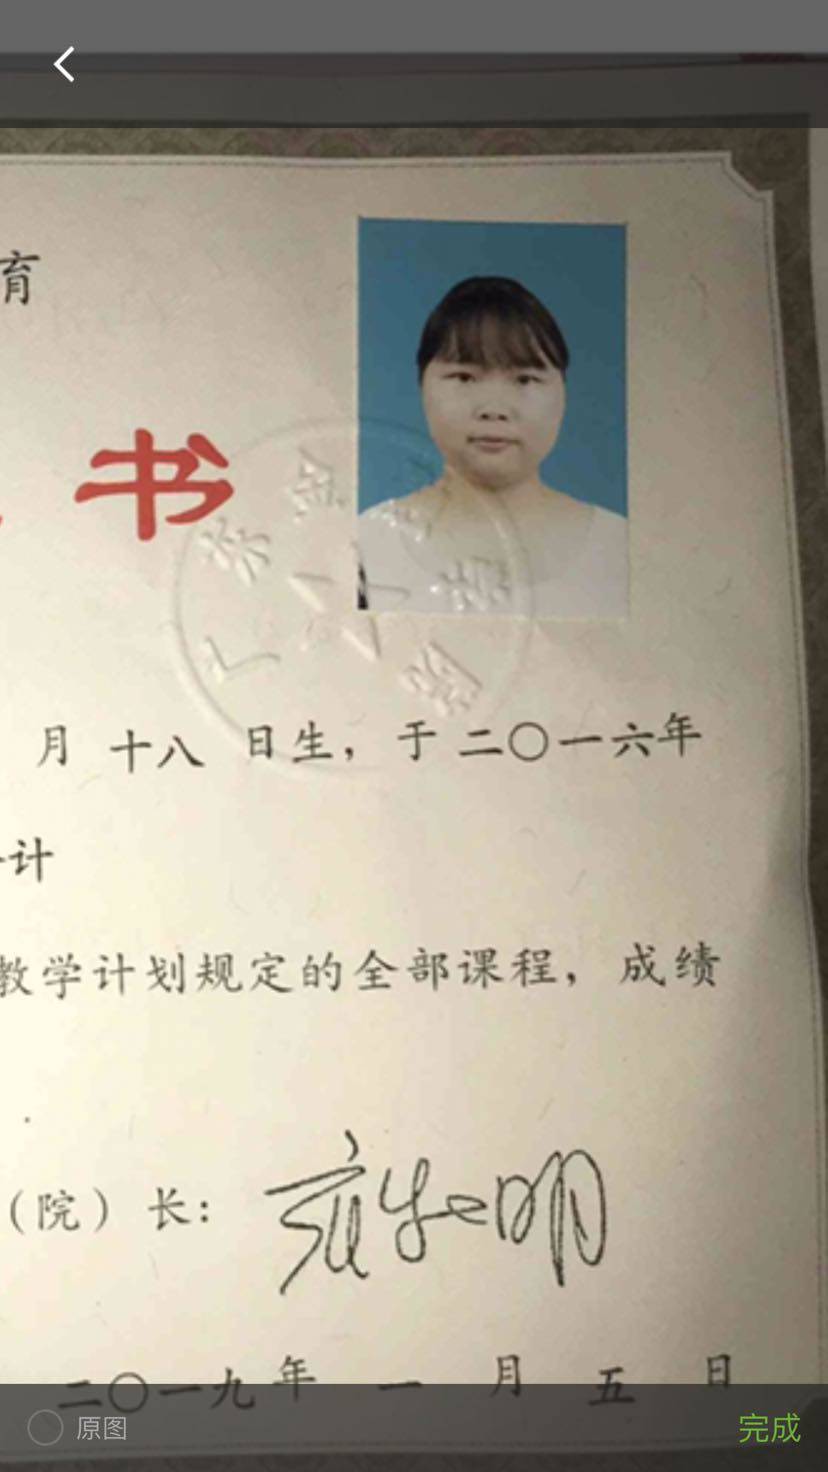 育
书
月 十八 日生，于 二〇一六年
计
教学计划规定的全部课程，成绩
（院）长：
二〇一九年 一 月 五 日
原图
完成